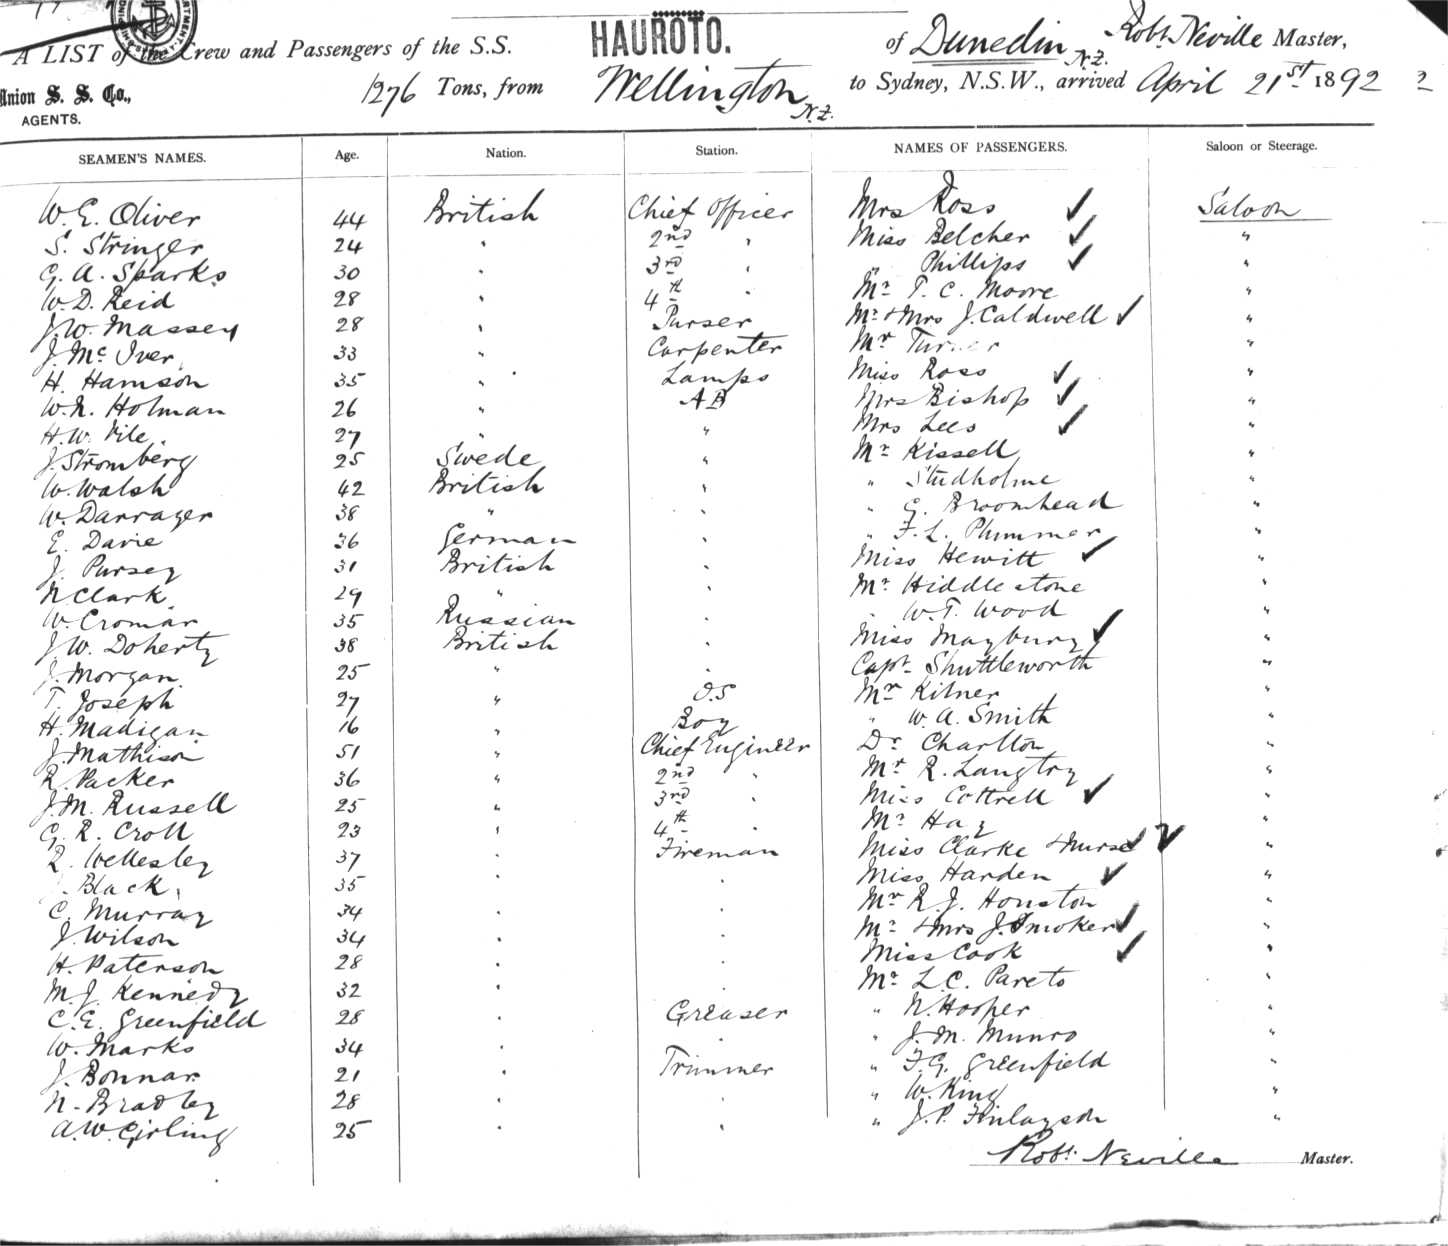 A LIST of the Crew and Passengers of the S.S. HAUROTO. of Dunedin N.Z. Robt. Neville Master,
Union S. S. Co., 1276 Tons, from Wellington N.Z. to Sydney, N.S.W., arrived April 21st 1892 2
AGENTS.
SEAMEN'S NAMES. Age. Nation. Station. NAMES OF PASSENGERS. Saloon or Steerage.
W. E. Oliver 44 British Chief Officer Mrs Ross ✓ Saloon
S. Stringer 24 " 2nd " Miss Belcher ✓ "
G. A. Sparks 30 " 3rd " " Phillips ✓ "
W. D. Reid 28 " 4th " Mr. T. C. Moore "
J. W. Massey 28 " Purser Mr. & Mrs J. Caldwell ✓ "
J. Mc Iver 33 " Carpenter Mr Turner "
H. Hamson 35 " Lamps Miss Ross ✓ "
W. N. Holman 26 " AB Mrs Bishop ✓ "
H. W. Vile 27 " " Mrs Lees ✓ "
J. Stromberg 25 Swede " Mr. Kissell "
W. Walsh 42 British " " Studholme "
W. Darrager 38 " " " G. Broomhead "
E. Davie 36 German " " F. L. Plummer "
J. Pursey 31 British " Miss Hewitt ✓ "
N Clark 29 " " Mr. Hiddlestone "
W. Cromar 35 Russian " " W. T. Wood "
J. W. Doherty 38 British " Miss Maybury ✓ "
J. Morgan 25 " " Capt. Shuttleworth "
T. Joseph 27 " O.S Mr Kitner "
H. Madigan 16 " Boy " W. A. Smith "
J. Mathison 51 " Chief Engineer Dr. Charlton "
R. Packer 36 " 2nd " Mr. R. Langtry "
J. M. Russell 25 " 3rd " Miss Cottrell ✓ "
G. R. Croll 23 " 4th " Mr. Hay "
R. Wellesley 37 " Fireman Miss Clarke & Nurse ✓ 2 "
Black 35 " " Miss Harden ✓ "
C. Murray 34 " " Mr R. J. Houston "
J. Wilson 34 " " Mr. & Mrs J. Smoker ✓ "
H. Paterson 28 " " Miss Cook ✓ "
M. J. Kennedy 32 " " Mr. L. C. Pareto "
C. E. Greenfield 28 " Greaser " N. Hooper "
W. Marks 34 " " " J. M. Munro "
J. Bonnar 21 " Trimmer " F. G. Greenfield "
N. Bradley 28 " " " W. King "
A. W. Girling 25 " " " J. P. Finlayson "
Robt. Neville Master.